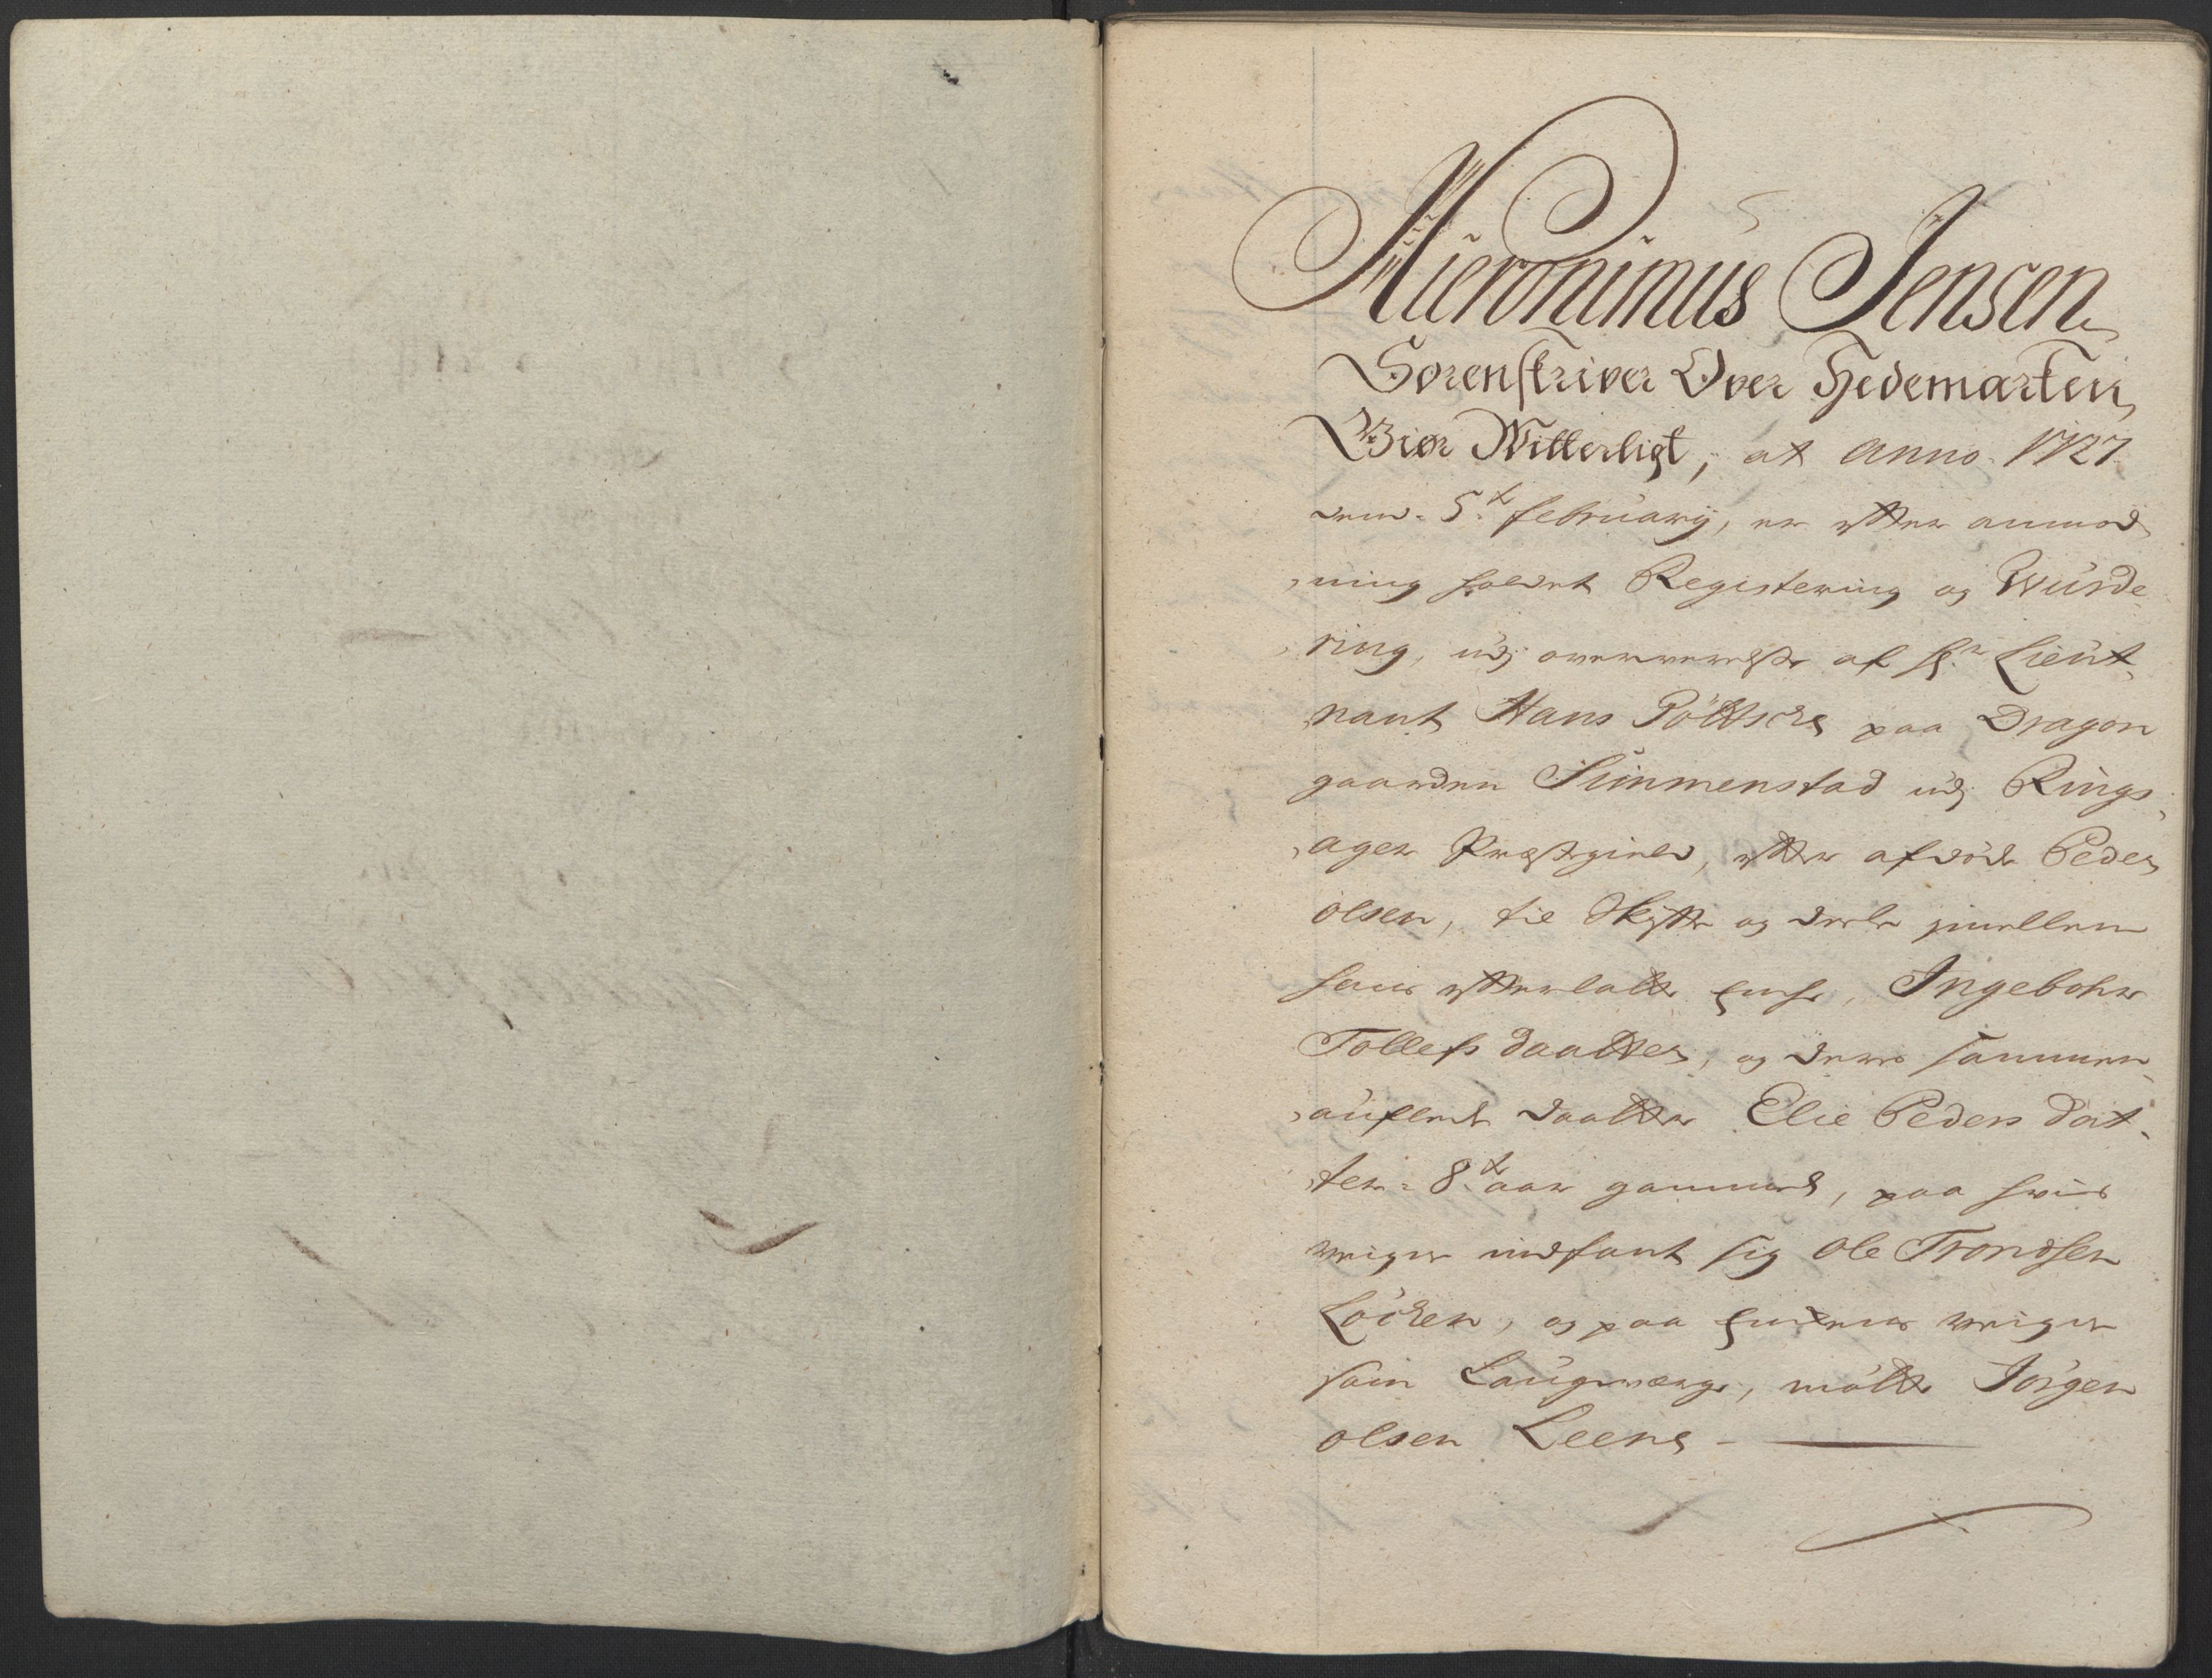 Hieronimus Jensen
Sorenskriver Over Hedemarken,
Giør Witterligt, at Anno 1727
den 5te februarij, er efter anmod,
,ning holdet Registering og Wurde
,ring, udj overværelse af hr. Lieut,
nant Hans Pöttscke paa Dragon
gaarden Simmenstad udj Rings,
,ager Præstegield, efter afdøde Peder
olsen, til Skifte og deele imellem
hans efterlatte Enke, Ingebohr
Tollefs daatter, og deres sammen
,auflede daatter Elie Peders dat,
,ter 8te aar gammel, paa hvis
veigne indfant sig Ole Trondsen
Löcken, og paa Enkens veigne
som Laugværge, mötte Jörgen
olsen Leene